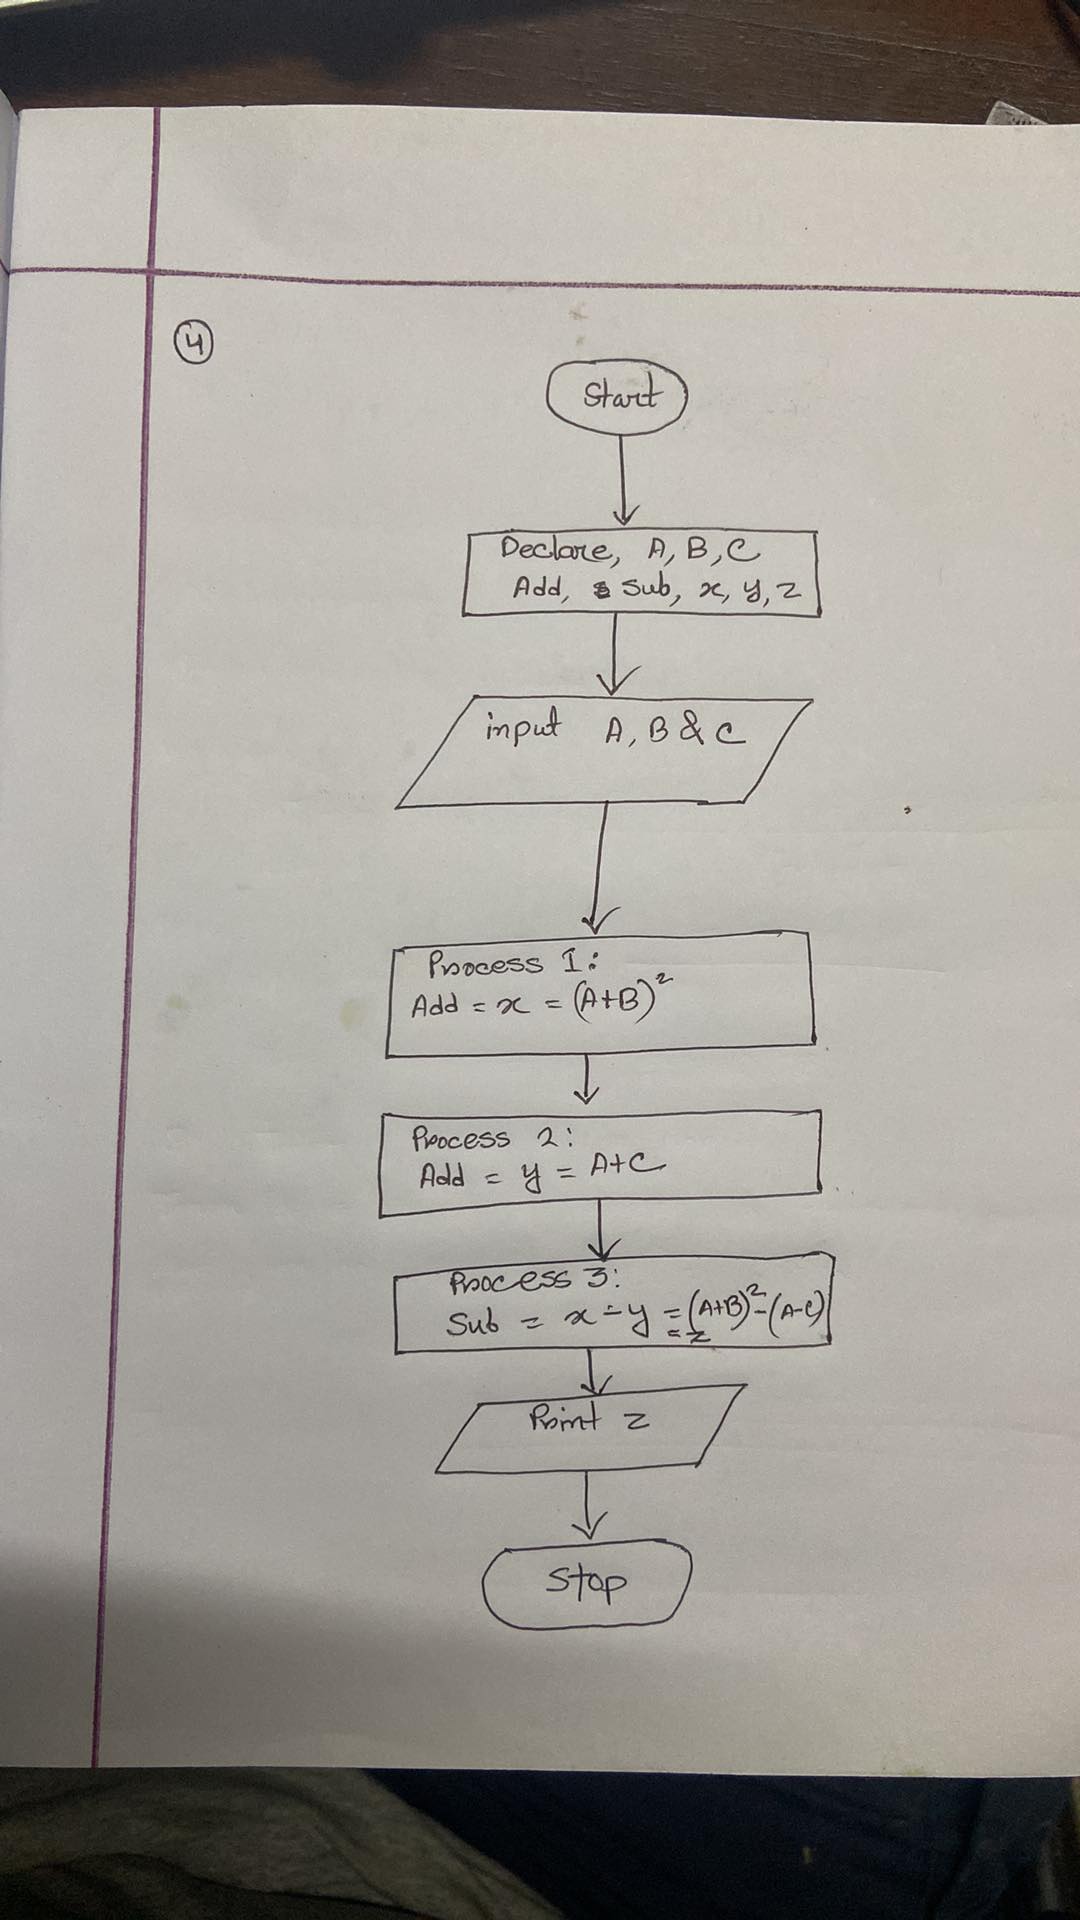 4
Start
Declare, A, B, C
Add, Sub, x, y, z
input A, B & C
Process 1:
Add = x = (A+B)²
Process 2:
Add = y = A+C
Process 3:
Sub = x - y = (A+B)² - (A-C)
= z
Print z
Stop